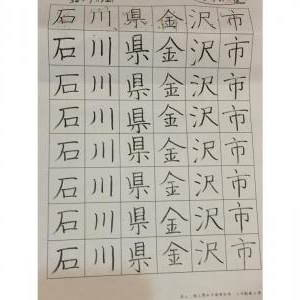 石川県金沢市
石川県金沢市
石川県金沢市
石川県金沢市
石川県金沢市
石川県金沢市
石川県金沢市
石川県金沢市
石川県金沢市